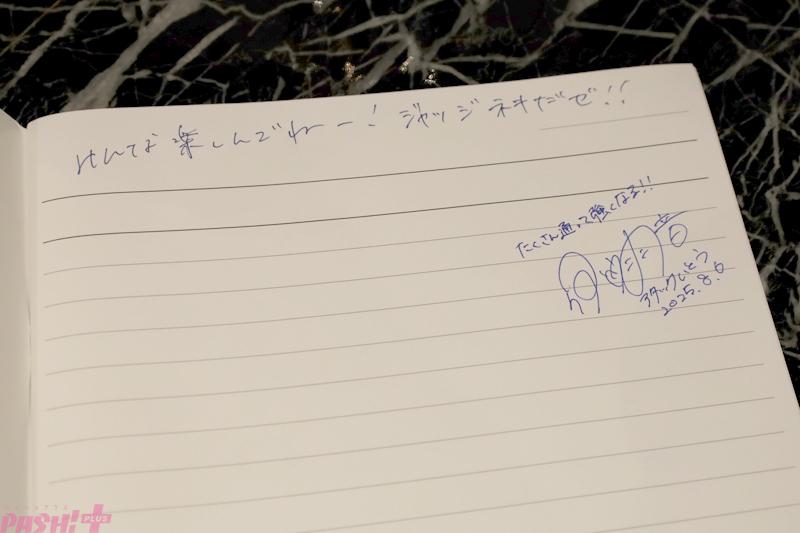 みんな楽しんでねー! ジャッジネキだぜ!!
たくさん通って強くなる!!
2025.8.6
PASH!+
PLUS